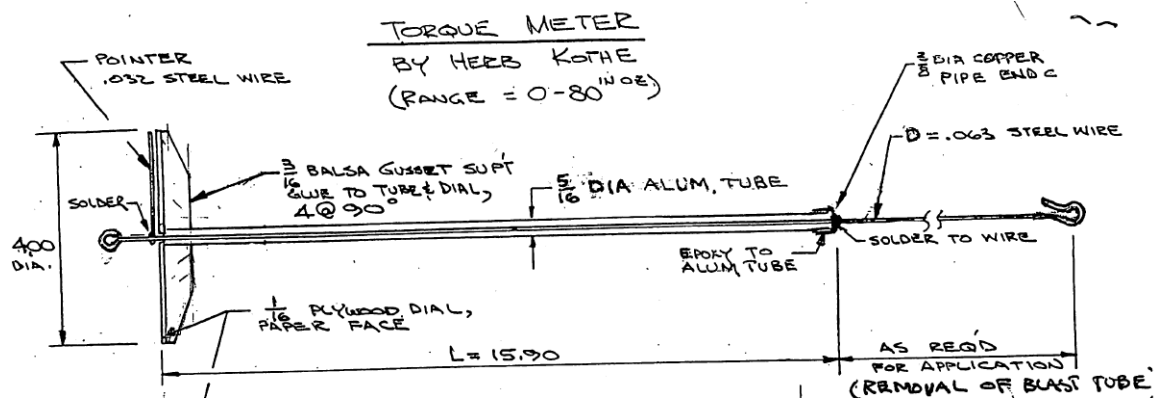 TORQUE METER
BY HERB KOTHE
(RANGE = 0-80 IN OZ)
POINTER
.032 STEEL WIRE
3/8 DIA COPPER
PIPE END C
D = .063 STEEL WIRE
3/16 BALSA GUSSET SUP'T
GLUE TO TUBE & DIAL,
4 @ 90°
5/16 DIA ALUM, TUBE
SOLDER
4.00
DIA.
SOLDER TO WIRE
EPOXY TO
ALUM, TUBE
1/16 PLYWOOD DIAL,
PAPER FACE
L = 15.90
AS REQ'D
FOR APPLICATION
(REMOVAL OF BLAST TUBE